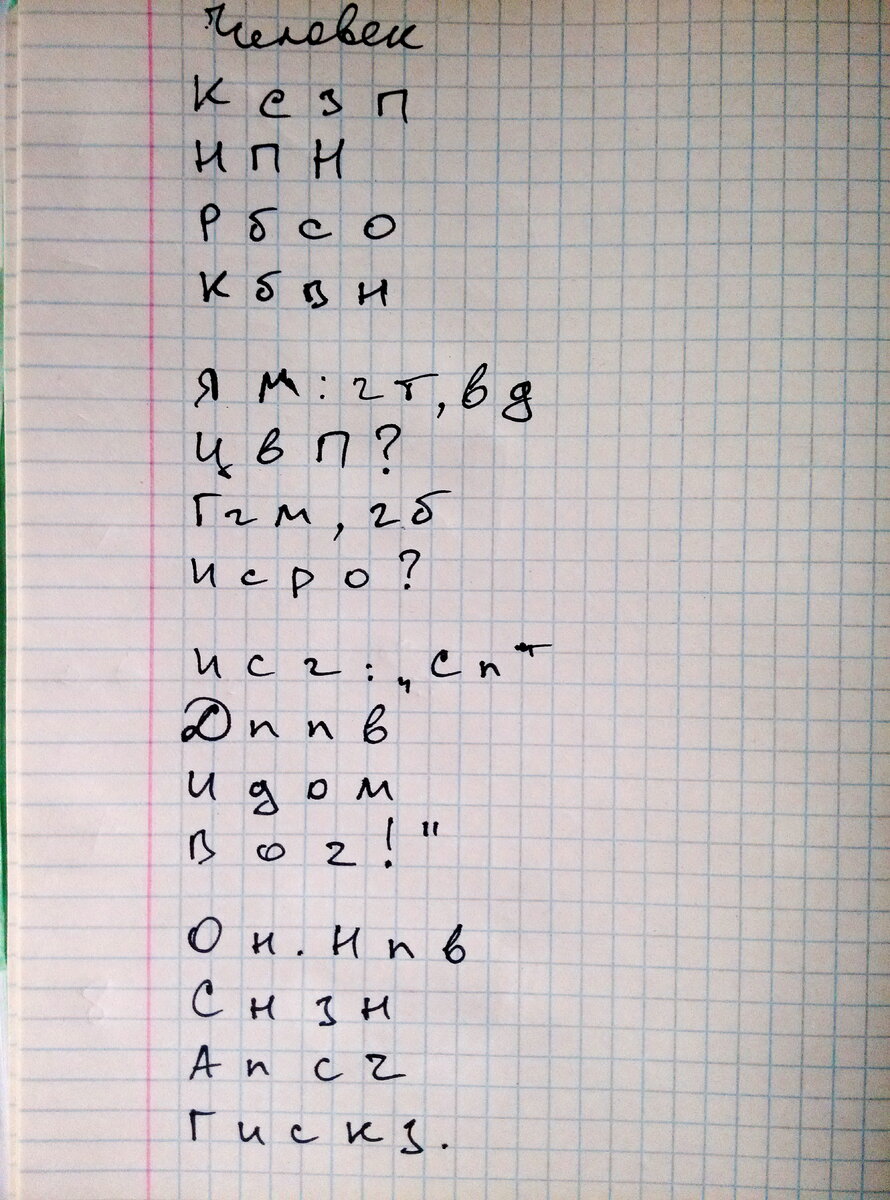 Человек
К с з п
Н П Н
Р б с о
К б в н
Я м: г т, в д
Ц в П?
Г г м, г б
И с р о?
И с г: „С п
Д п п в
И д о м
В о г!"
О н. Н п в
С н з н
А п с г
Г и с к з.